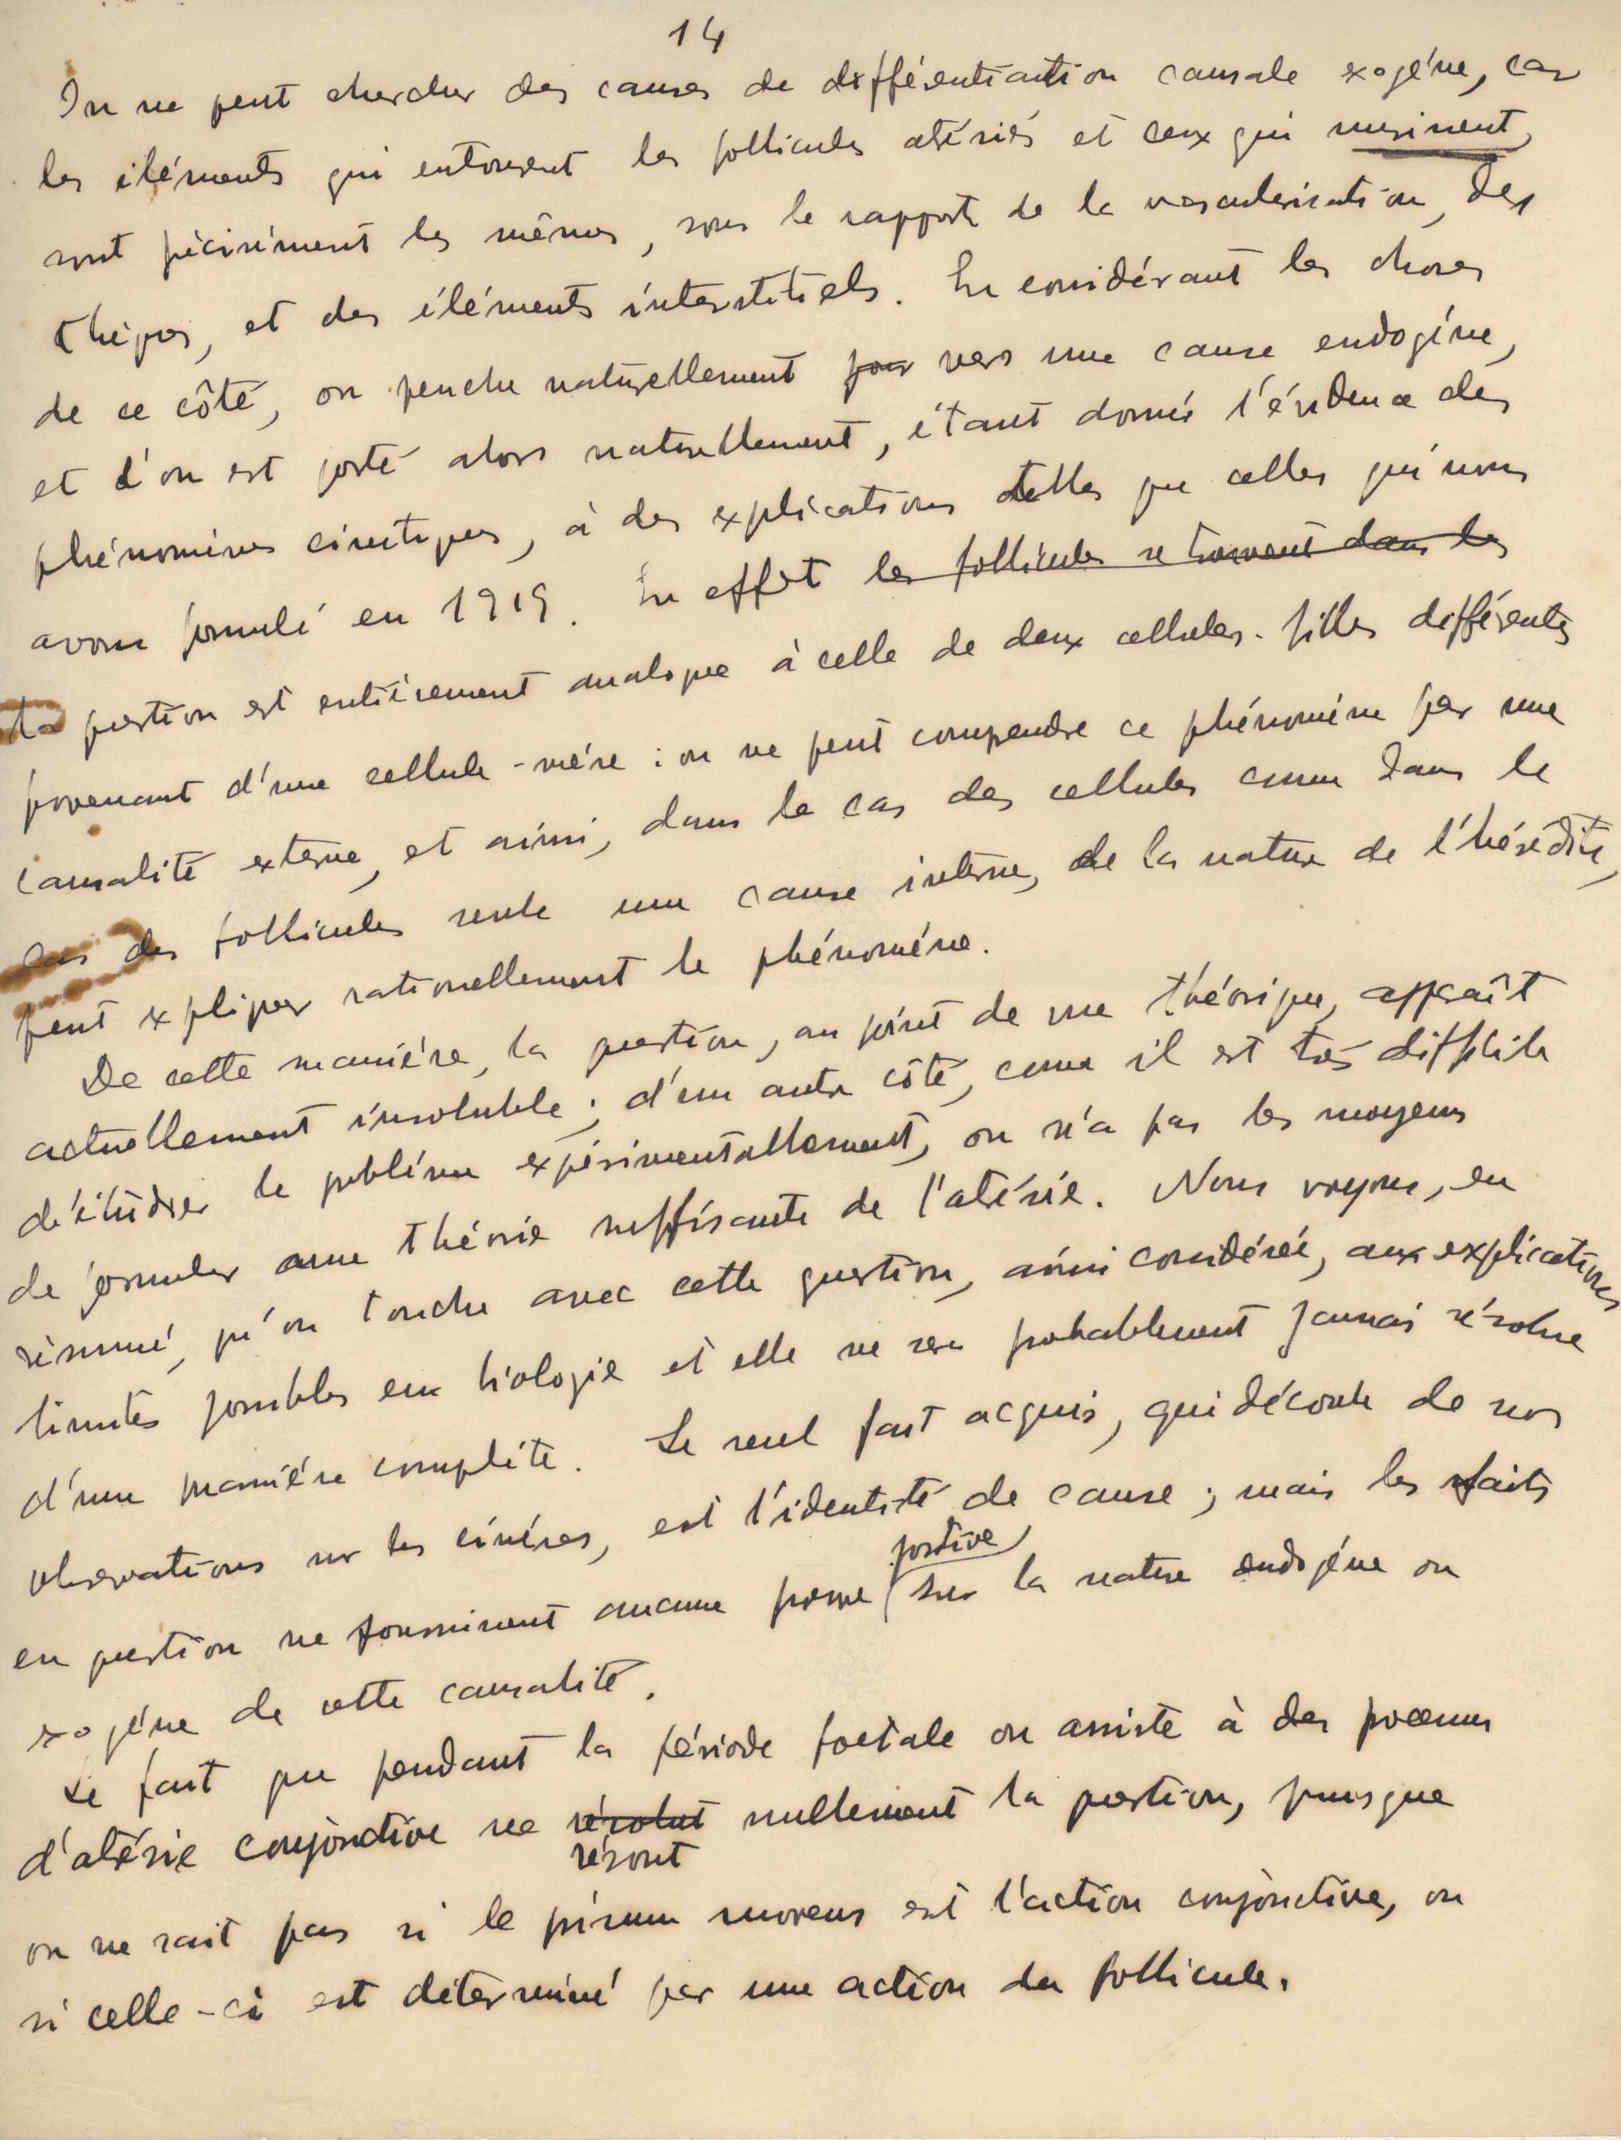 14
On ne peut chercher des causes de différentiation causale exogène, car
les éléments qui entourent les follicules atrésiés et ceux qui
sont précisément les mêmes, sous le rapport de la vascularisation, des
thèques, et des éléments interstitiels. En considérant les choses
de ce côté, on penche naturellement pour vers une cause endogène,
et l'on est porté alors naturellement, étant donné l'évidence des
phénomènes cinétiques, à des explications telles que celles qui nous
avons formulé en 1919. En effet les follicules se trouvent dans les
La question est entièrement analogue à celle de deux cellules-filles différentes
provenant d'une cellule-mère : on ne peut comprendre ce phénomène par une
causalité externe, et ainsi, dans le cas des cellules comme dans le
cas des follicules seule une cause interne, de la nature de l'hérédité,
peut expliquer rationnellement le phénomène.
De cette manière, la question, au point de vue théorique, apparaît
actuellement insoluble ; d'un autre côté, comme il est très difficile
d'étudier le problème expérimentalement, on n'a pas les moyens
de formuler une théorie suffisante de l'atrésie. Nous voyons, en
résumé, qu'on touche avec cette question, ainsi considérée, aux explications
limites possibles en biologie et elle ne sera probablement jamais résolue
d'une manière complète. Le seul fait acquis, qui découle de nos
observations sur les cinéses, est l'identité de cause ; mais les faits
en question ne fournissent aucune preuve positive sur la nature endogène ou
exogène de cette causalité.
Le fait que pendant la période foetale on assiste à des processus
d'atrésie conjonctive ne résolut résout nullement la question, puisque
on ne sait pas si le primum movens est l'action conjonctive, ou
si celle-ci est déterminé par une action du follicule.